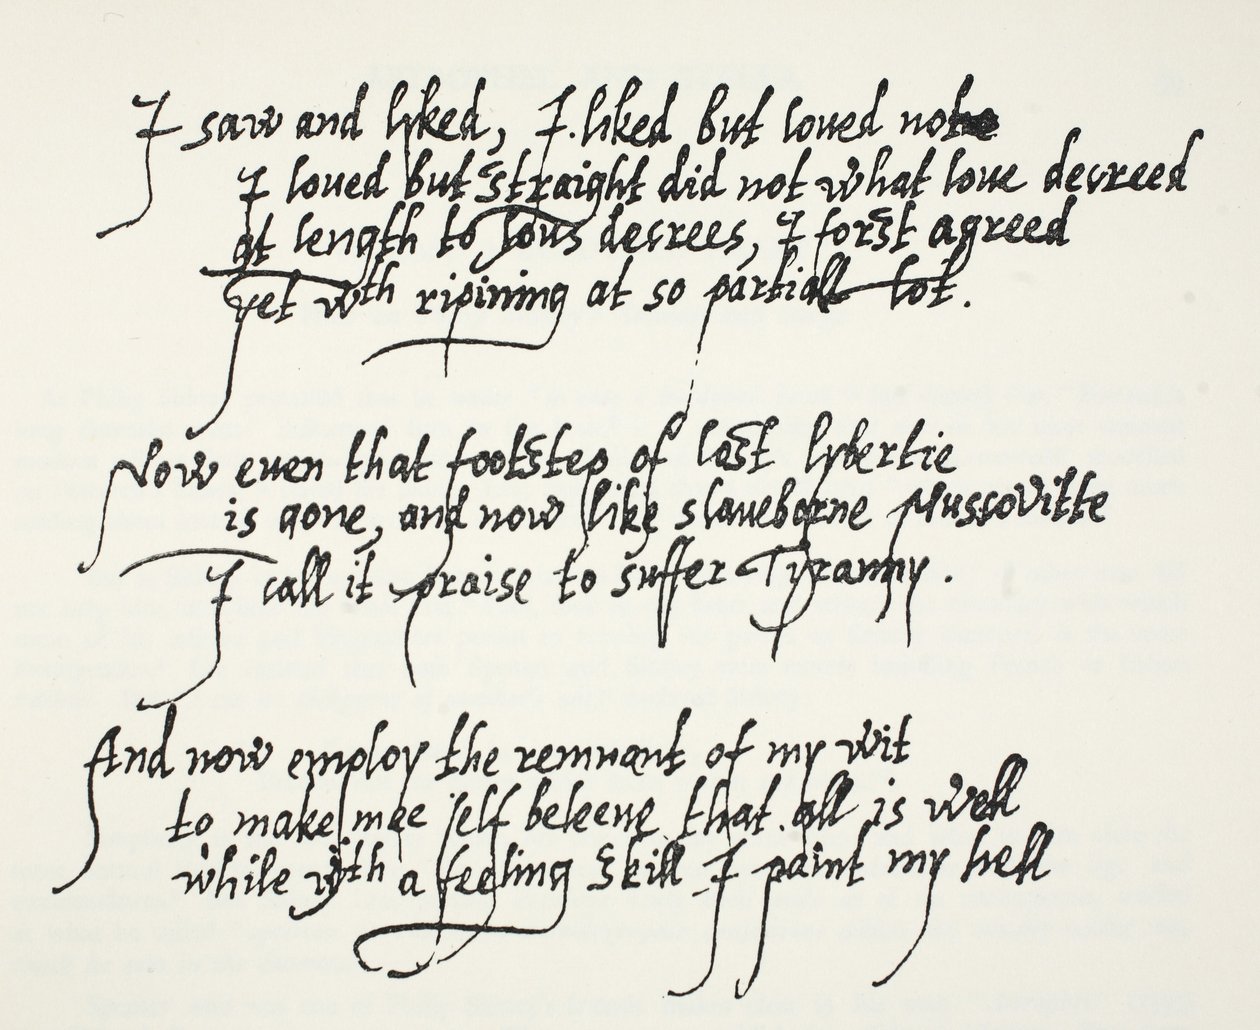 I saw and lyked, I liked but loued not
I loued but straight did not what loue decreed
at length to lous decrees, I forst agreed
yet wth ripining at so partiall lot.
Now euen that footstep of last lybertie
is gone, and now like slaueborne Muscovitte
I call it praise to suffer Tyranny.
And now employ the remnant of my wit
to make mee self beleeue that all is well
while wth a feeling skill I paint my hell